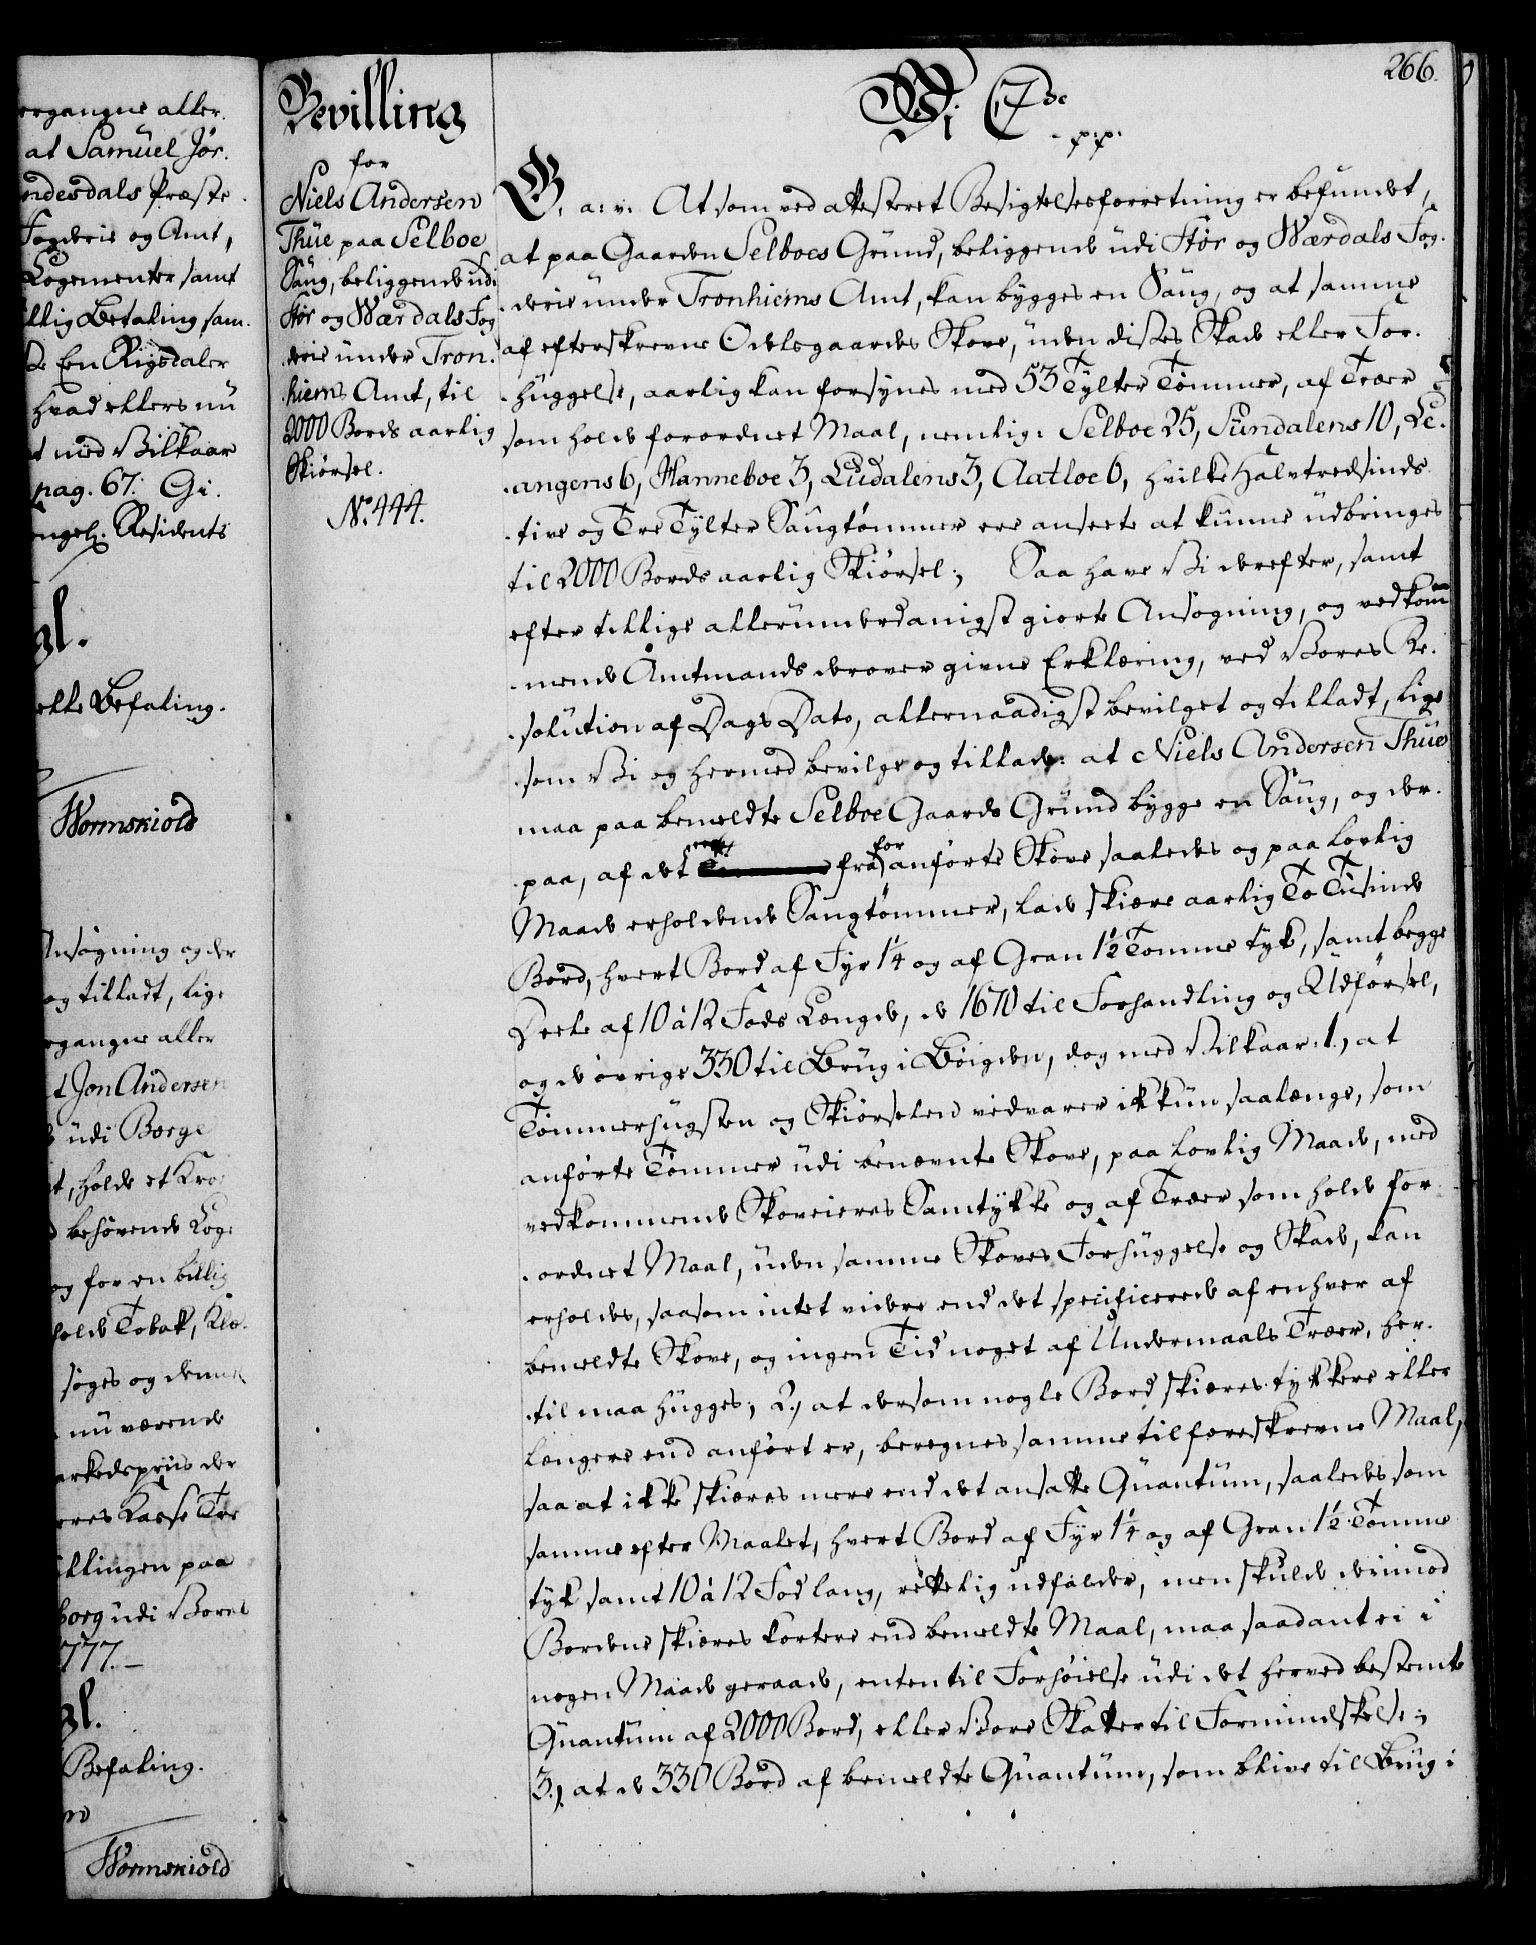 ergangne aller.
at Samuel Jør.
ndesdals Præste
Fogderie og Amt,
Logementer samt
illig Betaling sam.
En Rigsdaler
hvad ellers nu
med Vilkaar
pag. 67. Gi.
Residents
gl.
Befaling.
Wormskiold
Ansøgning og der
og tilladt, lige
ergangne aller
t Jon Andersen
udi Borge
t, holde et Kroe
behøvende Loge
og for en billig
holde Tobak, Klæ.
søges og denne
nu værende
arkedspriis der
eres Kasse Tre
illingen paa
borg udi Vores
1777.
gl.
Befaling.
Wormskiold
266.
Bevilling
for
Niels Andersen
Thüe paa Selboe
Saug, beliggende udi
Stør og Wærdals Fog
derie under Tron.
hiems Amt, til
2000 Bords aarlig
Skiørsel.
No. 444.
Vi C7de
p.p.
G. a: v: At som ved attesteret Besigtelsesforretning er befundet,
at paa Gaarden Selboes Grund, beliggende udi Stør og Wærdals Fog.
derie under Tronhiems Amt, kan bygges en Saug, og at samme
af efterskrevne Odelsgaardes Skove, uden disses Skade eller For.
huggelse, aarlig kan forsynes med 53 Tylter Tømmer, af Træer
som holde forordnet Maal, nemlig: Selboe 25, Sundalens 10, Le.
angens 6, Hanneboe 3, Ludalens 3, Aatloe 6, hvilke Halvtredsinds
tive og Tre Tylter Saugtømmer ere ansete at kunne udbringes
til 2000 Bords aarlig Skiørsel; Saa have Vi derefter, samt
efter tillige allerunderdanigst giorte Ansøgning, og vedkom
mende Amtmands derover givne Erklæring, ved Vores Re.
solution af Dags Dato, allernaadigst bevilget og tilladt, lige
som Vi og hermed bevilge og tillade: at Niels Andersen Thüe
maa paa bemeldte Selboe Gaards Grund bygge en Saug, og der.
paa, af det fra for anførte Skove saaledes og paa lovlig
Maade erholdende Saugtømmer, lade skiære aarlig To Tusinde
Bord, hvert Bord af Fyr 1¼ og af Gran 1½ Tomme tyk, samt begge
Deele af 10 à 12 Fods Længde, de 1670 til Forhandling og Udførsel,
og de øvrige 330 til Brug i Bøigden, dog med Vilkaar: 1., at
Tømmerhugsten og Skiørselen vedvarer ikkun saalænge, som
anførte Tømmer udi benævnte Skove, paa lovlig Maade, med
vedkommende Skoveieres Samtykke og af Træer som holde for
ordnet Maal, uden samme Skoves Forhuggelse og Skade, kan
erholdes, saasom intet videre end det specificerede af enhver af
bemeldte Skove, og ingen Tid noget af Undermaals Træer, her.
til maa hugges; 2., at dersom nogle Bord skiæres tykkere eller
længere end anført er, beregnes samme til foreskrevne Maal,
saa at ikke skiæres mere end det ansatte Quantum, saaledes som
samme efter Maalet, hvert Bord af Fyr 1¼ og af Gran 1½ Tomme
tyk samt 10 à 12 Fod lang, rettelig udfalder, men skulde derimod
Bordene skiæres kortere end bemeldte Maal, maa saadant ei i
nogen Maade geraade, enten til Forhøielse udi det herved bestemte
Quantum af 2000 Bord, eller Vore Skatter til Formindskelse;
3., at de 330 Bord af bemeldte Quantum, som blive til Brug i